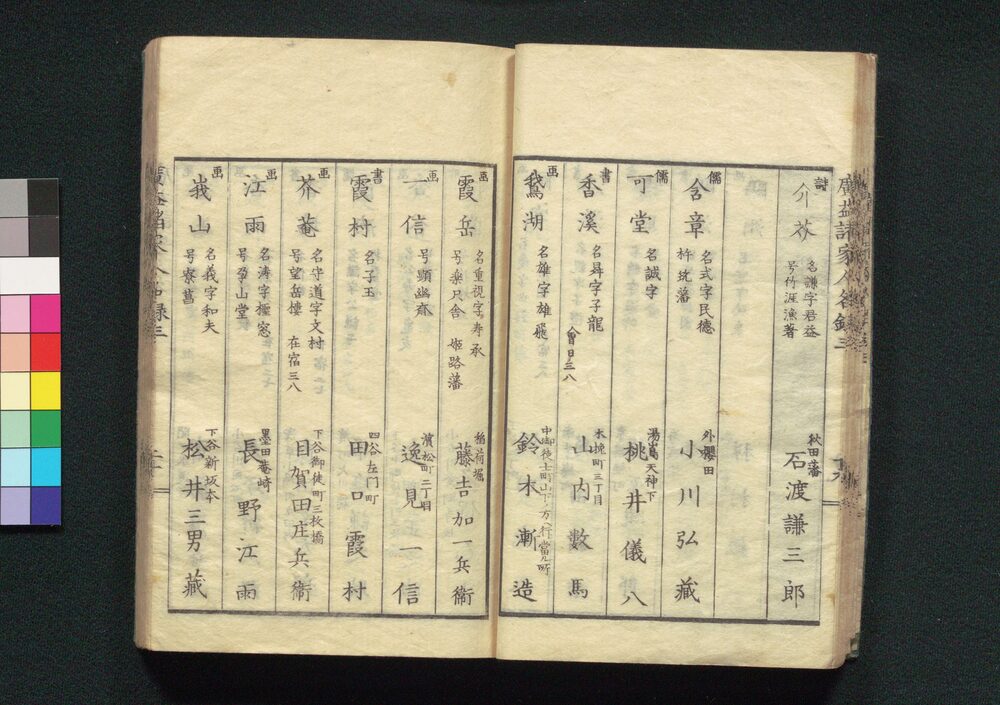 廣益諸家人名録三
詩
介茶
名謙字君益
号竹涯漁者
秋田藩
石渡謙三郎
儒
含章
名式字民德
杵築藩
外櫻田
小川弘藏
儒
可堂
名誠字
湯嶌天神下
桃井儀八
書
香溪
名昇字子龍
會日三八
木挽町三丁目
山内數馬
画
鵞湖
名雄字雄飛
中御徒士町
鈴木漸造
画
霞岳
名重視字寿承
号楽只舎 姫路藩
稲荷堀
藤吉加一兵衛
画
一信
号顕幽斎
濱松町三丁目
逸見一信
書
霞村
名子玉
四谷左門町
田口霞村
画
芥菴
名守道字文村
号望岳樓 在宿三八
下谷御徒町三枚橋
目賀田庄兵衛
画
江雨
墨田菴崎
長野江雨
画
峩山
名義字和夫
号寮菖
下谷新坂本
松井三男藏
廣益諸家人名録三